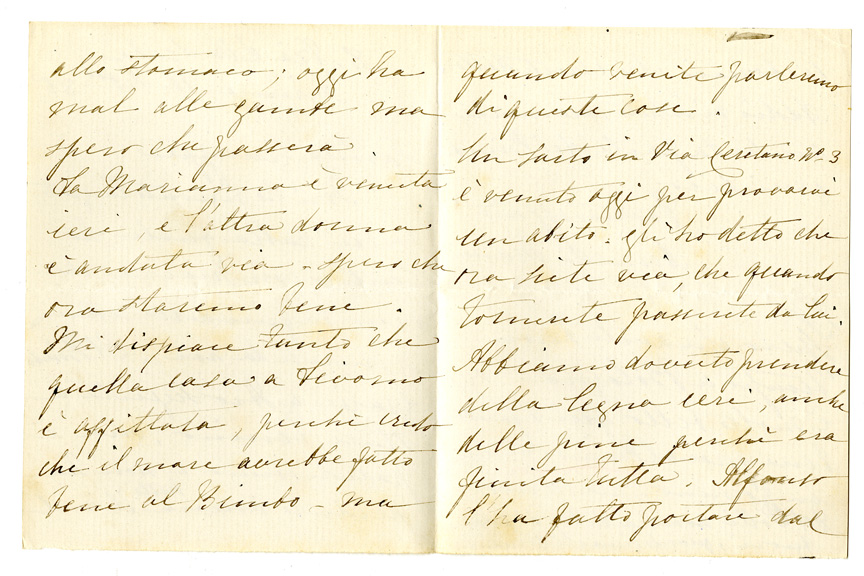 allo stomaco; oggi ha
mal alle gambe ma
spero che passerà
La Marianna è venuta
ieri, e l'altra donna
è andata via - spero che
ora staremo bene.
Mi dispiace tanto che
quella casa a Livorno
è affittata, perchè credo
che il mare avrebbe fatto
bene al Bimbo - ma
quando venite parleremo
di queste cose.
Un sarto in Via Cerretano, No. 3
è venuto oggi per provarvi
un abito. gli ho detto che
ora siete via, che quando
tornerete passerete da lui.
Abbiamo dovuto prendere
della legna ieri, anche
delle pine perchè era
finita tutta. Alfonso
l'ha fatto portare dal